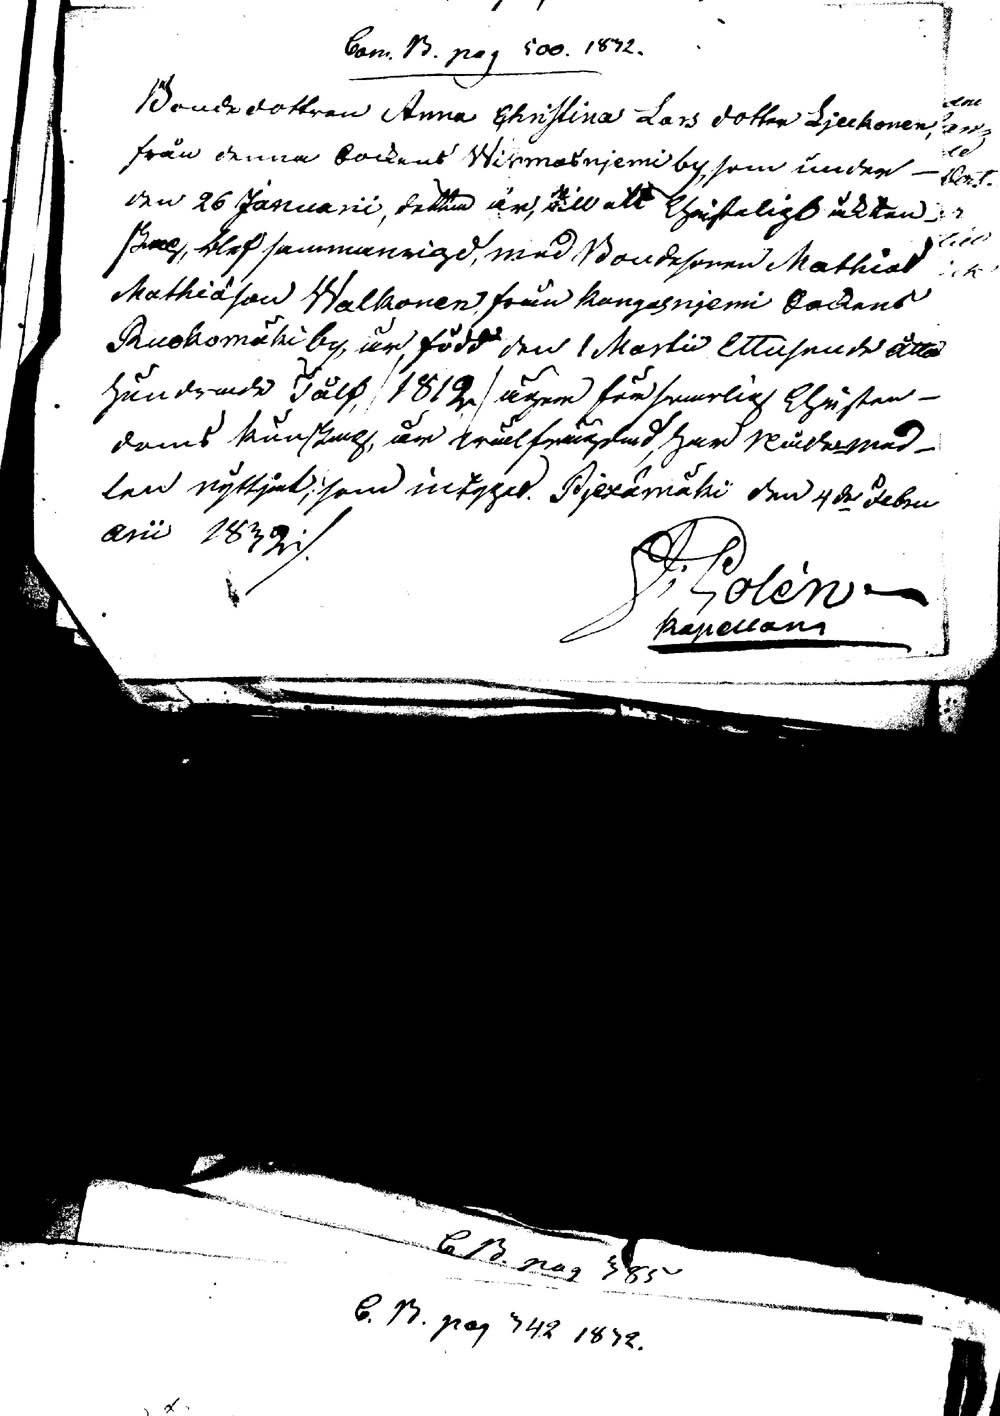 Com. B. pag 500. 1832.
Bondedottren Anna Christina Lars dotter Ljeckonen,
från denna Sockens Wirmasnjemi by, som under —
den 26 Januarii, detta år, till ett Christeligt ächten
skap, blef sammanvigd, med Bondesonen Mathias
Mathiason Walkonen från Kangasnjemi Sockens
Ruokomäki by, är född den 1 Martii Ettusende åtta
hundrade Tålf, /1812/ äger försvarlig Christen —
doms kunskap, är wälfrägdad, har Nådemed —
len nyttjat, som intygas. Pjexämäki den 4de Febru
arii 1832 ./.
Polén
Kapellan
C. B. pag 385
C. B. pag 342 1832.